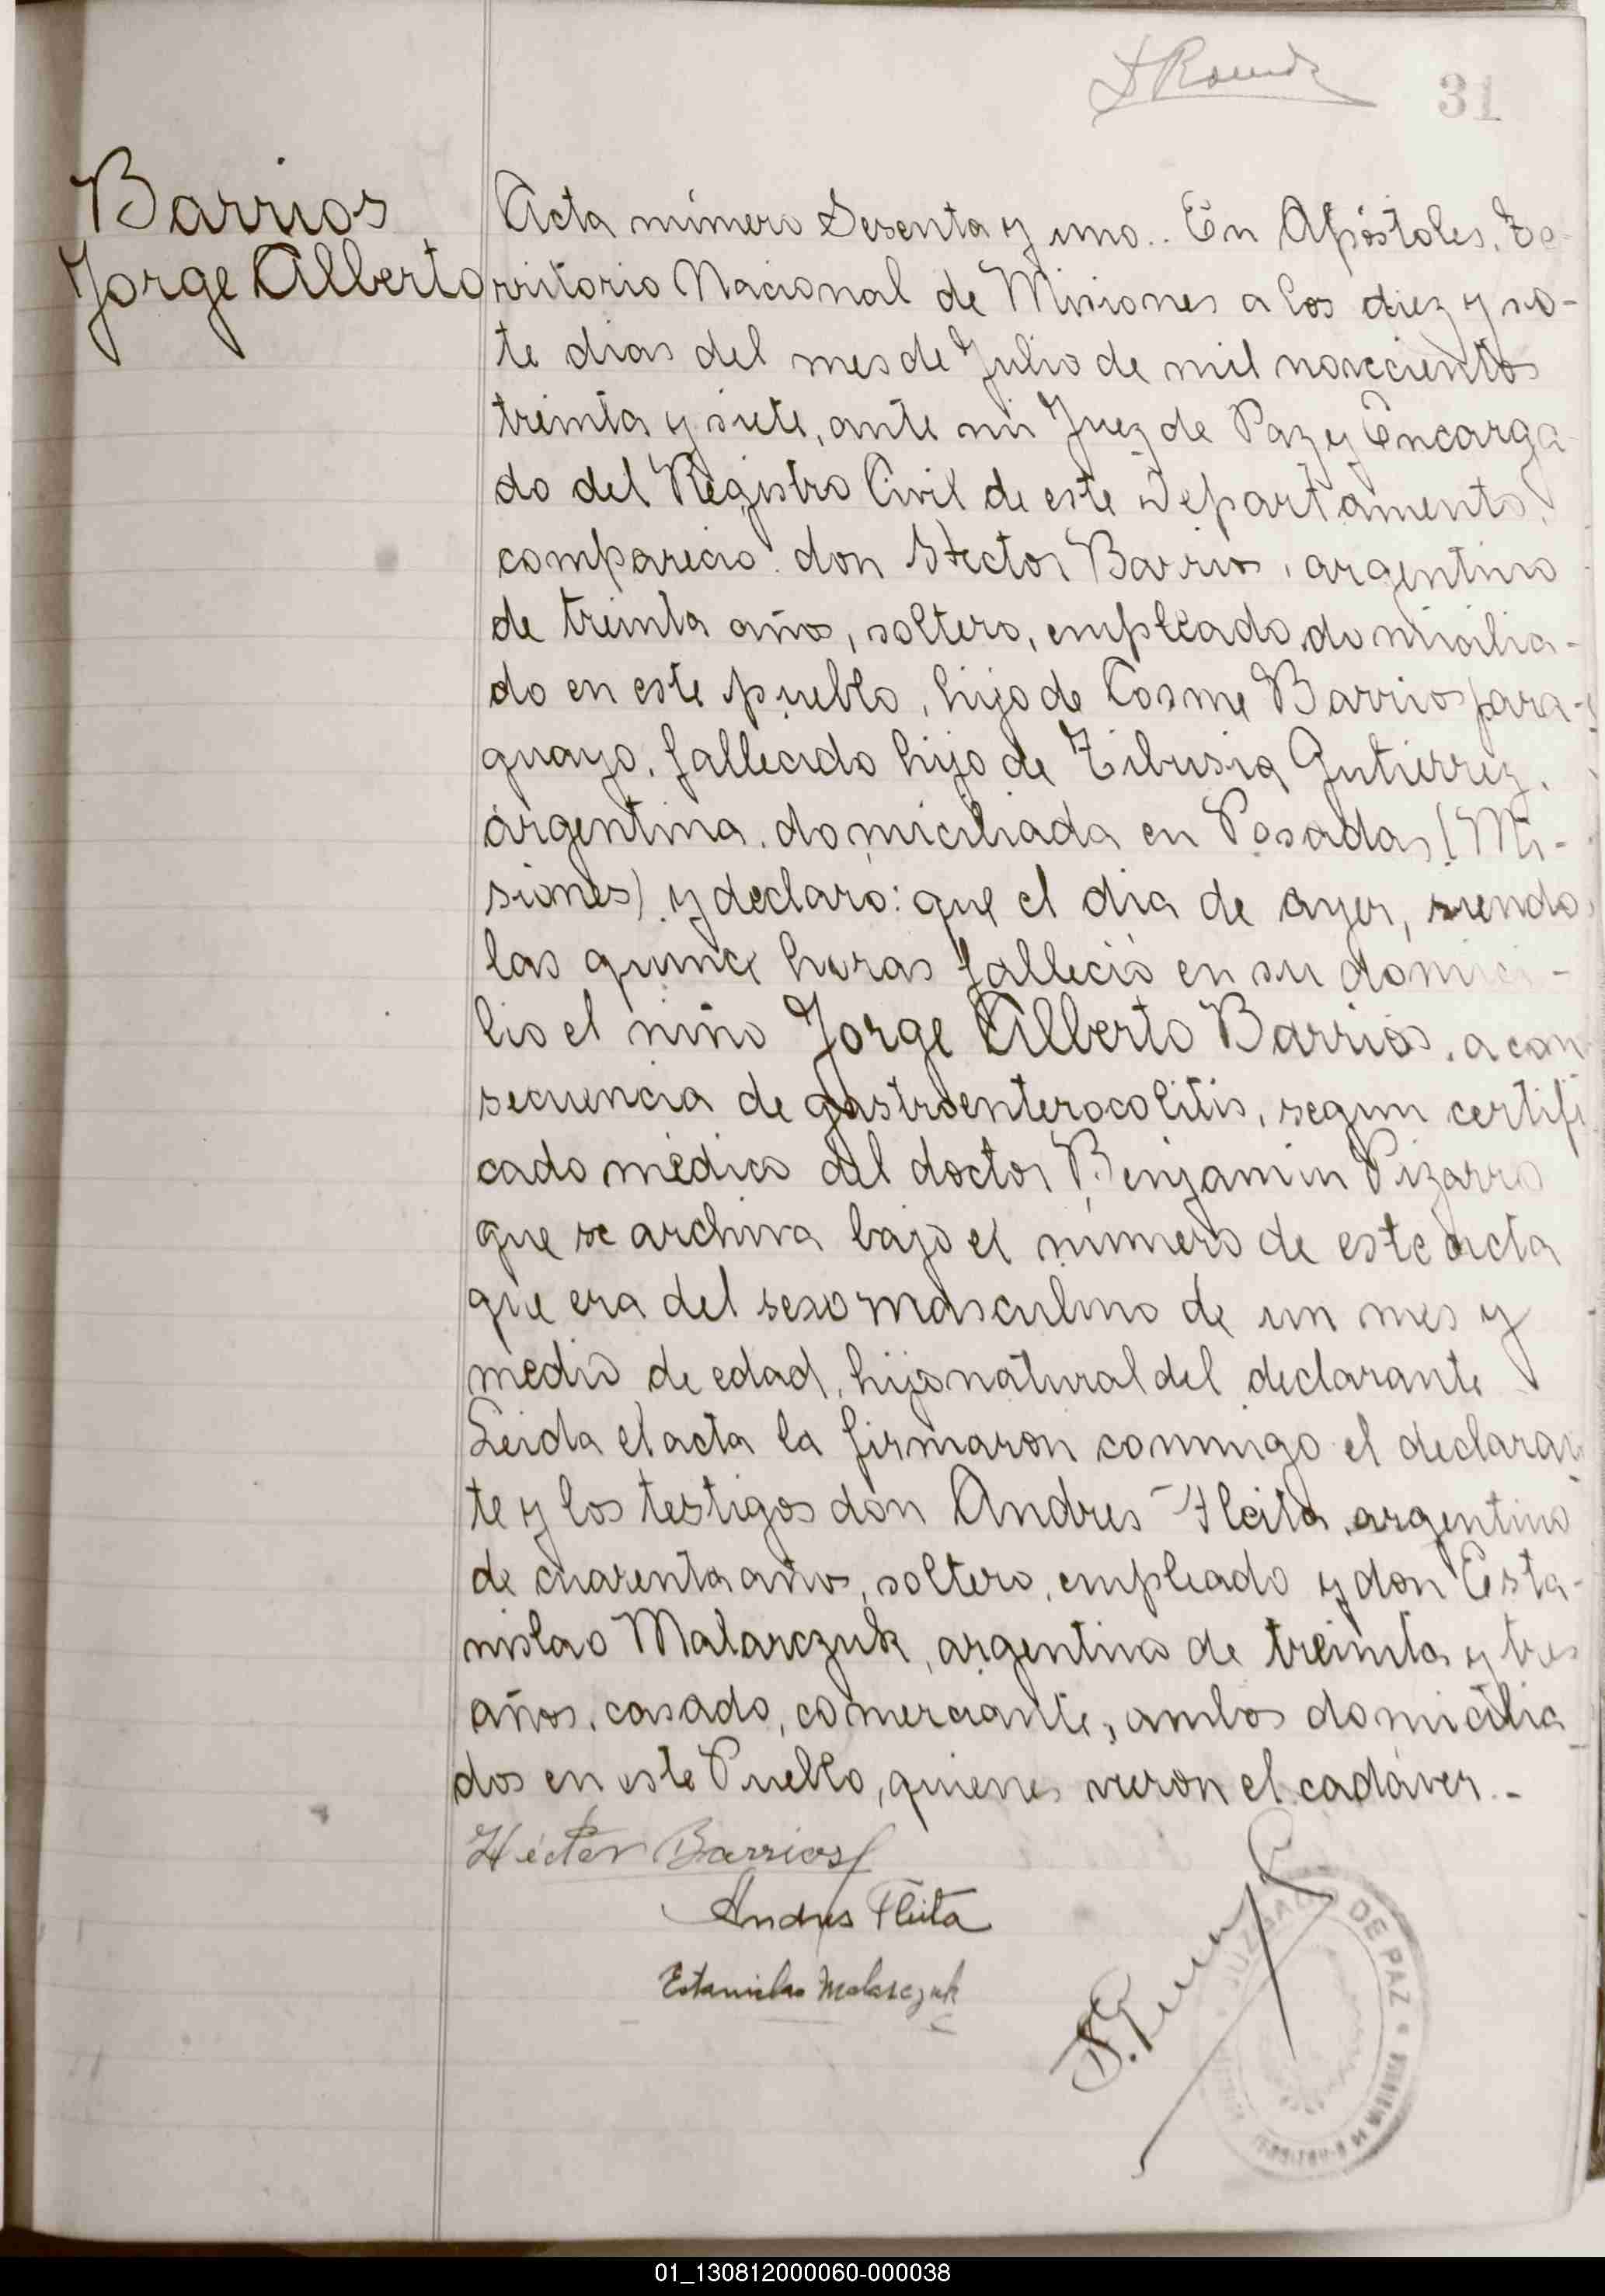 31
Barrios
Jorge Alberto
Acta número Sesenta y uno.. En Apóstoles, Te-
rritorio Nacional de Misiones a los diez y sie-
te dias del mes de Julio de mil novecientos
treinta y siete, ante mi Juez de Paz y Encarga-
do del Registro Civil de este Departamento,
compareció: don Hector Barrios, argentino
de treinta años, soltero, empleado, domicilia-
do en este pueblo, hijo de Cosme Barrios para-
guayo, fallecido hijo de Tibusia Gutierrez,
argentina, domiciliada en Posadas (Mi-
siones) y declaró: que el dia de ayer, siendo
las quince horas falleció en su domici-
lio el niño Jorge Alberto Barrios, a con
secuencia de gastroenterocolitis, segun certifi
cado médico del doctor Benjamin Pizarro
que se archiva bajo el número de este acta
que era del sexo masculino de un mes y
medio de edad, hijo natural del declarante
Leida el acta la firmaron conmigo el declaran
te y los testigos don Andres Fleita, argentino
de cuarenta años, soltero, empleado y don Esta-
nislao Malarczuk, argentino de treinta y tres
años, casado, comerciante, ambos domicilia
dos en este Pueblo, quienes vieron el cadáver.-
Héctor Barrios
Andres Fleita
Estanislao Malarczuk
JUZGADO DE PAZ
01_130812000060-000038